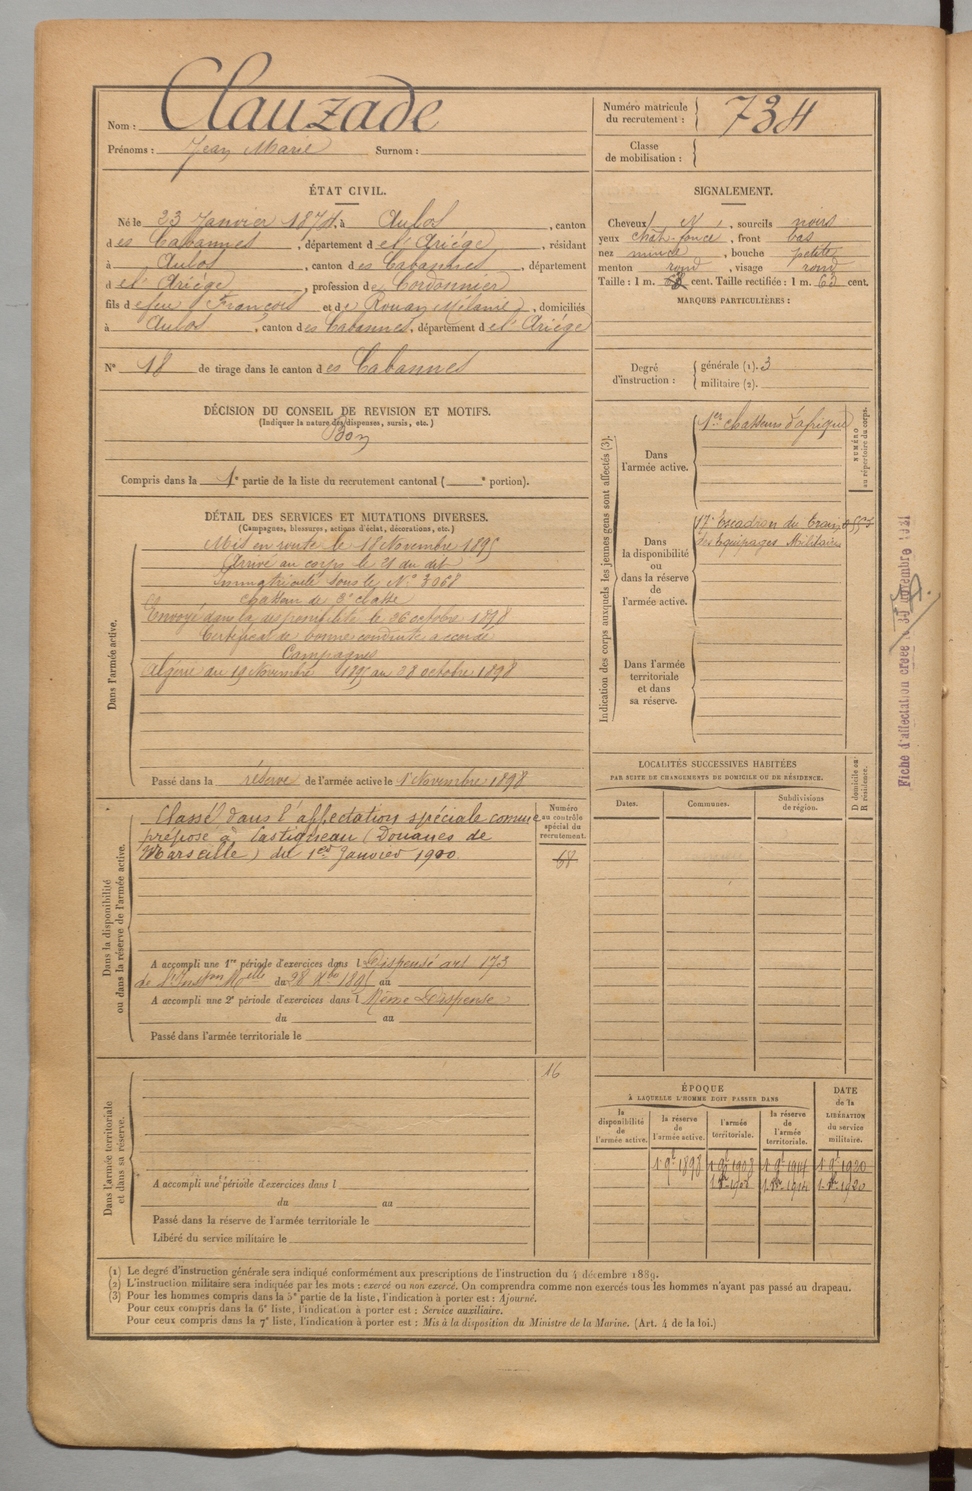 Nom : Clauzade
Prénoms : Jean Marie Surnom :
Numéro matricule du recrutement : 734
Classe de mobilisation :
ÉTAT CIVIL.
Né le 23 Janvier 1874, à Aulos, canton
des Cabannes, département de l'Ariége, résidant
à Aulos, canton des Cabannes, département
de l'Ariége, profession de Cordonnier
fils de feu François et de Rouan Mélanie, domiciliés
à Aulos, canton des Cabannes, département de l'Ariége
N° 18 de tirage dans le canton des Cabannes
SIGNALEMENT.
Cheveux N, sourcils noirs
yeux chât. foncé, front bas
nez mince, bouche petite
menton rond, visage rond
Taille : 1 m. cent. Taille rectifiée : 1 m. 63 cent.
MARQUES PARTICULIÈRES :
Degré d'instruction : générale (1). 3
militaire (2).
DÉCISION DU CONSEIL DE REVISION ET MOTIFS.
(Indiquer la nature des dispenses, sursis, etc.)
Bon
Compris dans la 1e partie de la liste du recrutement cantonal ( e portion).
DÉTAIL DES SERVICES ET MUTATIONS DIVERSES.
(Campagnes, blessures, actions d'éclat, décorations, etc.)
Dans l'armée active.
Mis en route le 18 Novembre 1895
Arrivé au corps le 21 du dit
Immatriculé sous le N° 3068
chasseur de 2e classe
Envoyé dans la disponibilité le 26 octobre 1898
Certificat de bonne conduite accordé
Campagnes
Algérie du 19 Novembre 1895 au 28 octobre 1898
Passé dans la réserve de l'armée active le 1 Novembre 1898
Indication des corps auxquels les jeunes gens sont affectés (3).
NUMÉRO au répertoire du corps.
Dans l'armée active.
1er chasseurs d'afrique
Dans la disponibilité ou dans la réserve de l'armée active.
17e Escadron du Train
des équipages Militaires
Dans l'armée territoriale et dans sa réserve.
Fiche d'affectation créée le 30 novembre 1921
LOCALITÉS SUCCESSIVES HABITÉES
PAR SUITE DE CHANGEMENTS DE DOMICILE OU DE RÉSIDENCE.
Dates. Communes. Subdivisions de région. D domicile ou R résidence.
Dans la disponibilité ou dans la réserve de l'armée active.
Numéro au contrôle spécial du recrutement.
68
Classé dans l'affectation spéciale comme
préposé à Castigneau (Douanes de
Marseille) du 1er Janvier 1900
A accompli une 1re période d'exercices dans l Dispensé art 173
de l'Instion Melle du 28 Xbre 1895 au
A accompli une 2e période d'exercices dans l Même Dispense
du au
Passé dans l'armée territoriale le
Dans l'armée territoriale et dans sa réserve.
16
A accompli une période d'exercices dans l
du au
Passé dans la réserve de l'armée territoriale le
Libéré du service militaire le
ÉPOQUE
À LAQUELLE L'HOMME DOIT PASSER DANS
la disponibilité de l'armée active. la réserve de l'armée active. l'armée territoriale. la réserve de l'armée territoriale.
DATE de la LIBÉRATION du service militaire.
1 9e 1898 1 9e 1908 1 9e 1914 1 9e 1920
(1) Le degré d'instruction générale sera indiqué conformément aux prescriptions de l'instruction du 4 décembre 1889.
(2) L'instruction militaire sera indiquée par les mots : exercé ou non exercé. On comprendra comme non exercés tous les hommes n'ayant pas passé au drapeau.
(3) Pour les hommes compris dans la 5e partie de la liste, l'indication à porter est : Ajourné.
Pour ceux compris dans la 6e liste, l'indication à porter est : Service auxiliaire.
Pour ceux compris dans la 7e liste, l'indication à porter est : Mis à la disposition du Ministre de la Marine. (Art. 4 de la loi.)